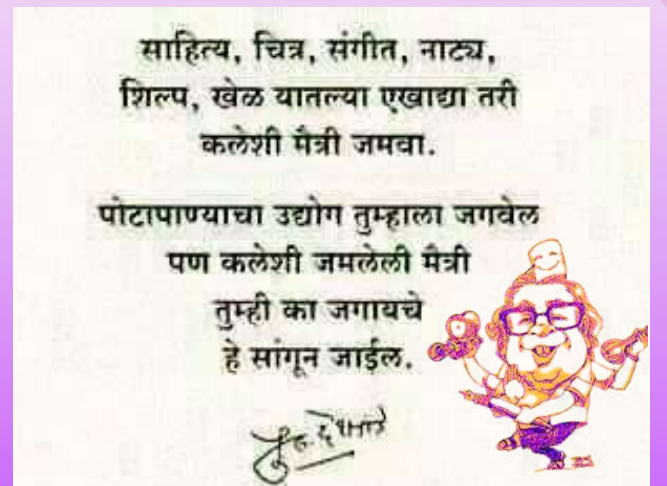 साहित्य, चित्र, संगीत, नाट्य,
शिल्प, खेळ यातल्या एखाद्या तरी
कलेशी मैत्री जमवा.
पोटापाण्याचा उद्योग तुम्हाला जगवेल
पण कलेशी जमलेली मैत्री
तुम्ही का जगायचे
हे सांगून जाईल.
पु. ल. देशपांडे